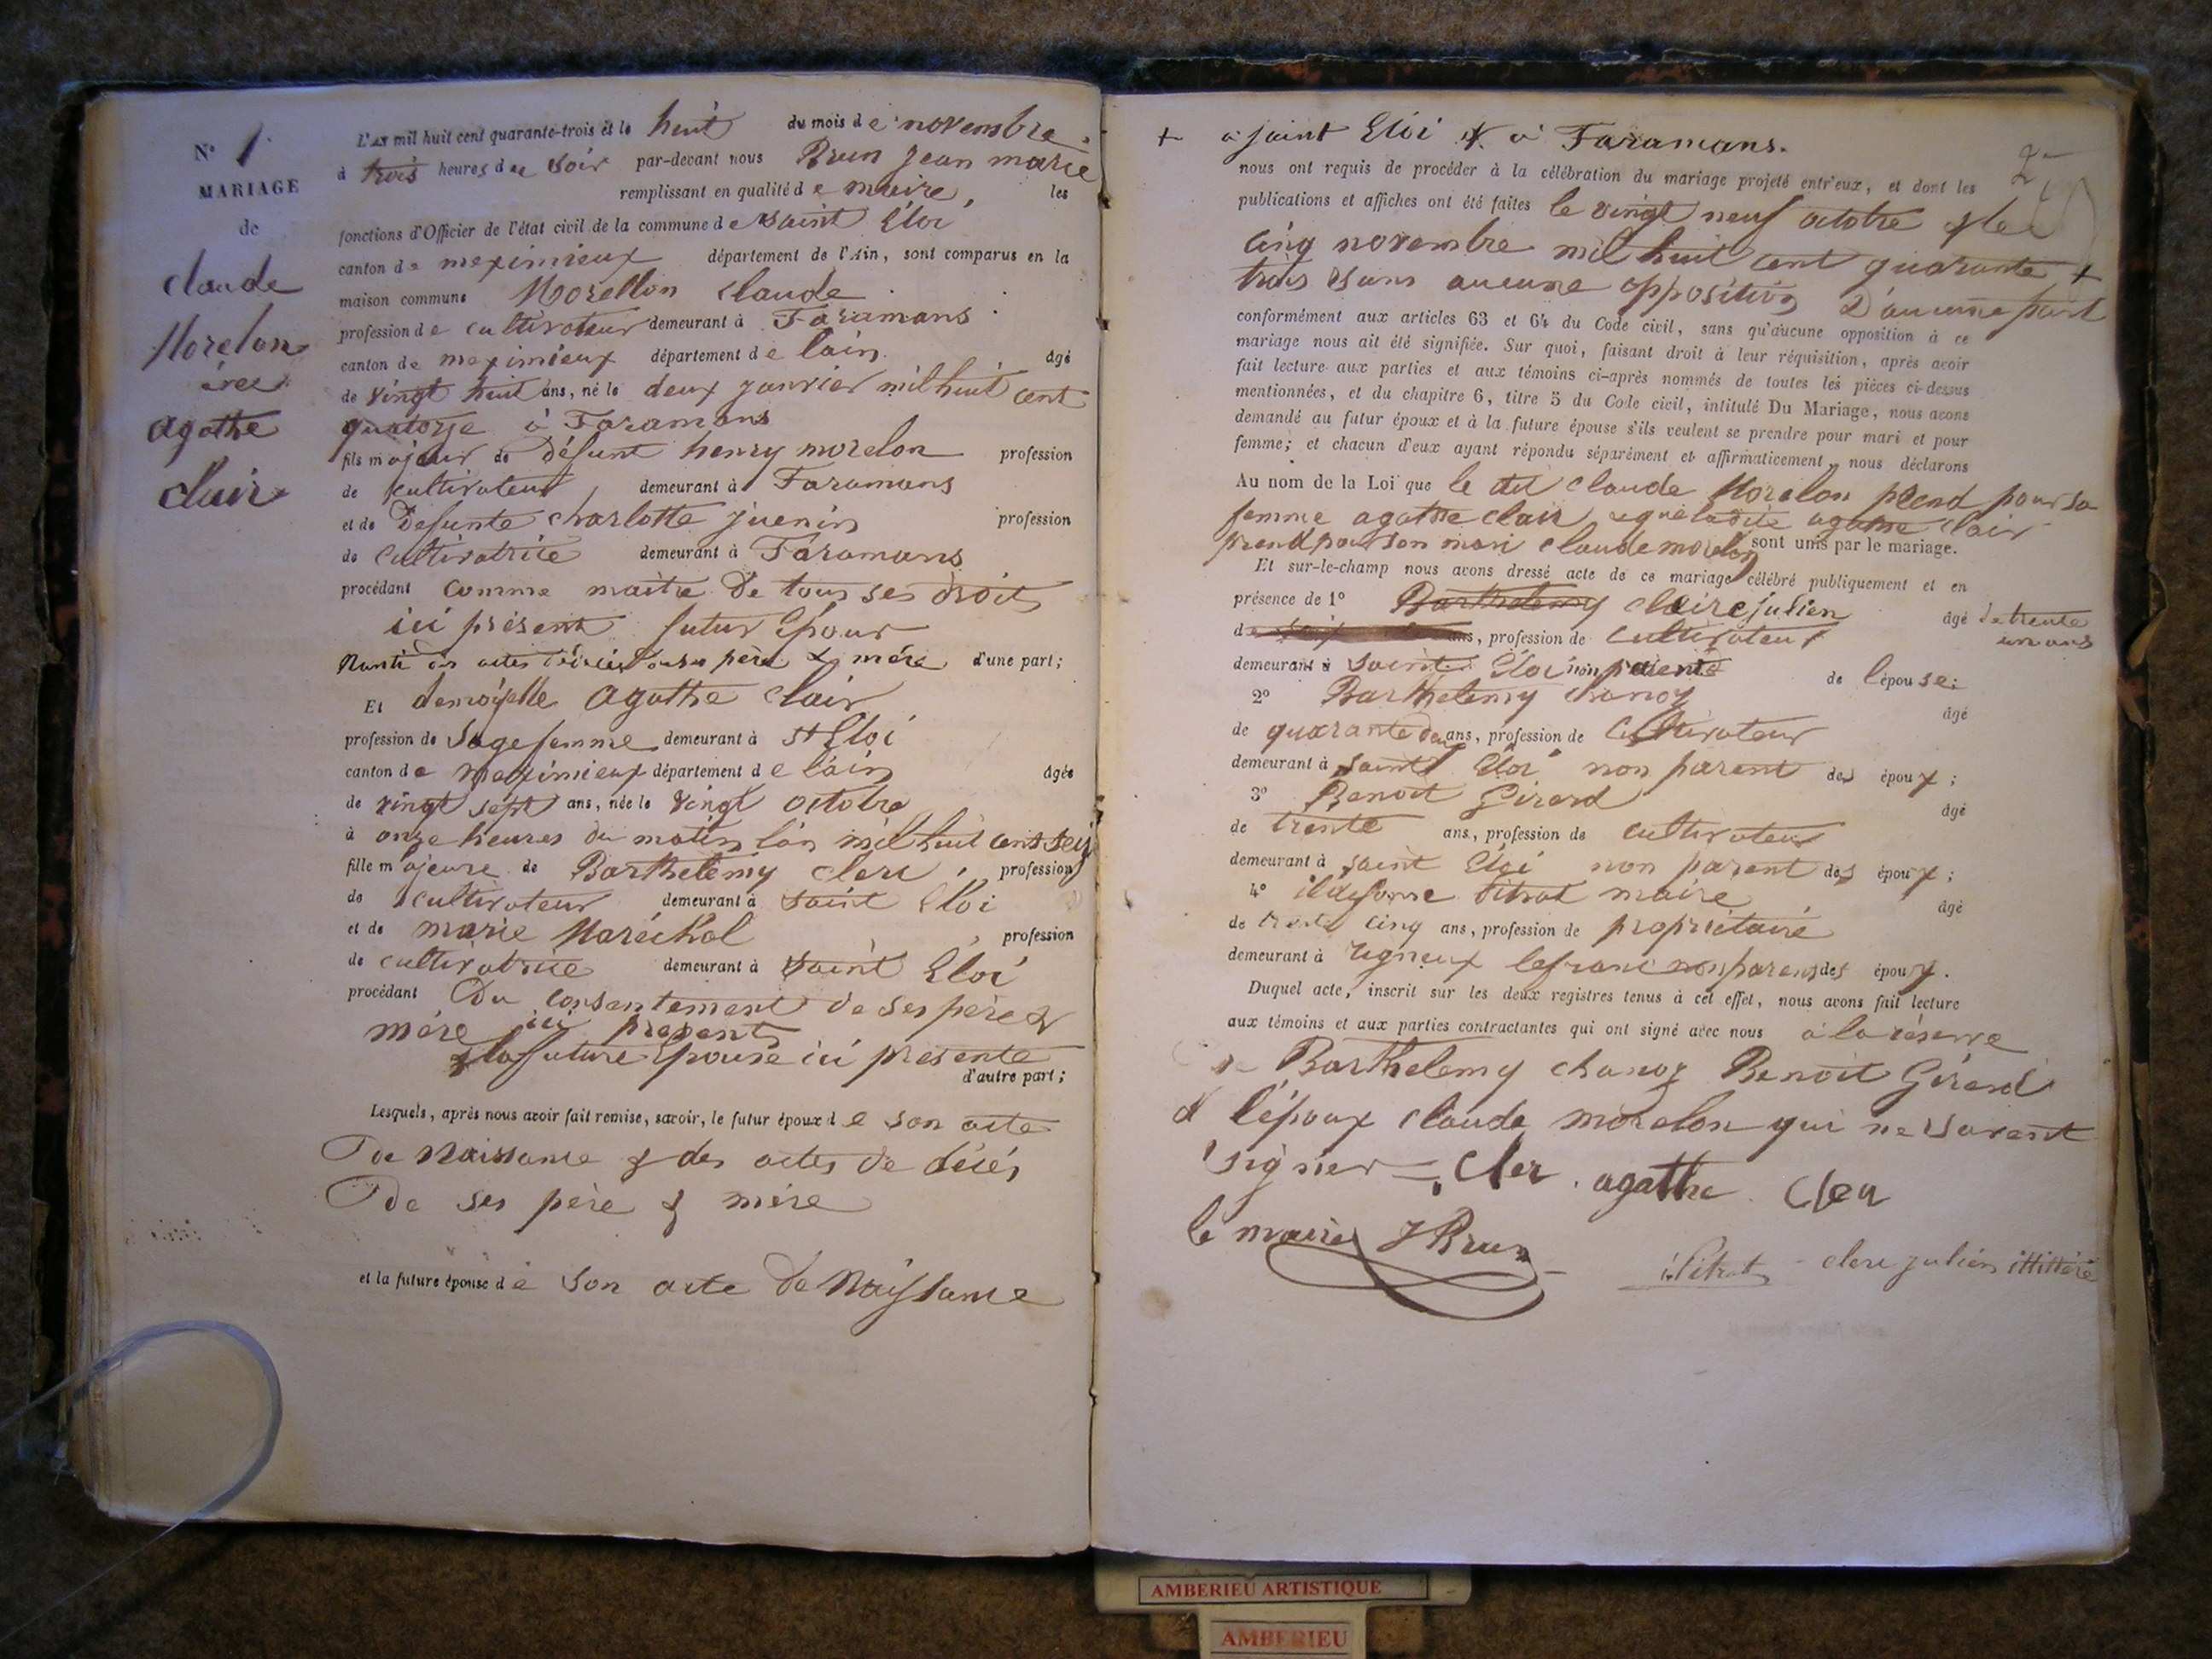 N° 1
MARIAGE
de
claude
Morelon
avec
agathe
clair
L'AN mil huit cent quarante-trois et le huit du mois de novembre
à trois heures du soir par-devant nous Brun jean marie
remplissant en qualité de maire, les
fonctions d'Officier de l'état civil de la commune de saint Eloi
canton de meximieux département de l'Ain, sont comparus en la
maison commune Morellon claude
profession de cultivateur demeurant à Faramans
canton de meximieux département de lain. âgé
de vingt huit ans, né le deux janvier mil huit cent
quatorze à Faramans
fils majeur de défunt henry morelon profession
de cultivateur, demeurant à Faramans
et de Defunte charlotte juenin profession
de cultivatrice demeurant à Faramans
procédant comme maitre de tous ses droits
ici présent futur Epoux
Nanti des actes décés de ses père & mére d'une part;
Et demoiselle agathe clair
profession de sagefemme demeurant à St Eloi
canton de meximieux département de lain âgée
de vingt sept ans, née le vingt octobre
à onze heures du matin lan mil huit cent seize
fille majeure de Barthelemy clerc, profession
de cultivateur demeurant à saint Eloi
et de marie Maréchal profession
de cultivatrice demeurant à saint Eloi
procédant Du consentement de ses père &
mére ici present
& la future Epouse ici presente
d'autre part;
Lesquels, après nous avoir fait remise, savoir, le futur époux de son acte
De Naissance & des actes de décés
De ses père & mère
et la future épouse de son acte De Naissance
+ à saint Eloi & à Faramans.
nous ont requis de procéder à la célébration du mariage projeté entr'eux, et dont les
publications et affiches ont été faites le vingt neuf octobre & le
cinq novembre mil huit cent quarante +
trois sans aucune opposition D'aucune part
conformément aux articles 63 et 64 du Code civil, sans qu'aucune opposition à ce
mariage nous ait été signifiée. Sur quoi, faisant droit à leur réquisition, après avoir
fait lecture aux parties et aux témoins ci-après nommés de toutes les pièces ci-dessus
mentionnées, et du chapitre 6, titre 5 du Code civil, intitulé Du Mariage, nous avons
demandé au futur époux et à la future épouse s'ils veulent se prendre pour mari et pour
femme; et chacun d'eux ayant répondu séparément et affirmativement, nous déclarons
Au nom de la Loi que le dit claude Morelon prend pour sa
femme agathe clair & que ladite agathe clair
prend pour son mari claude morelon sont unis par le mariage.
Et sur-le-champ nous avons dressé acte de ce mariage célébré publiquement et en
présence de 1° Barthelemy claire julien âgé de trente
un ans
de ans, profession de cultivateur
demeurant à saint Eloi non parent de lépouse;
2° Barthelemy chanoz âgé
de quarante deux ans, profession de cultivateur
demeurant à saint Eloi non parent des époux;
3° Benoit Girard âgé
de trente ans, profession de cultivateur
demeurant à saint Eloi non parent des époux;
4° ildefonse titrat maire âgé
de trente cinq ans, profession de propriétaire
demeurant à rigneux lefranc non parens des époux.
Duquel acte, inscrit sur les deux registres tenus à cet effet, nous avons fait lecture
aux témoins et aux parties contractantes qui ont signé avec nous à la réserve
de Barthelemy chanoz Benoit Girard
& l'époux claude morelon qui ne savent
signer =. Cler. agathe Cler
le maire J Brun
i. titrat clerc julien
AMBERIEU ARTISTIQUE
AMBERIEU